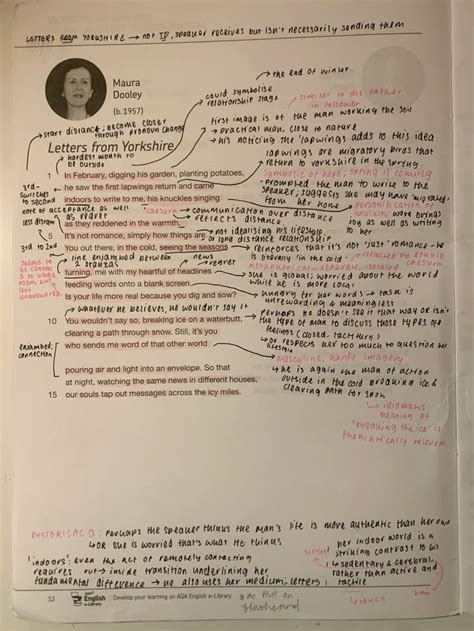 LETTERS FROM YORKSHIRE → not TO, speaker receives but isn't necessarily sending them
Maura
Dooley
(b. 1957)
the end of winter
could symbolise
relationship stage
similar to the father
in follower
first image is of the man working the soil
→ practical man, close to nature
→ his noticing the 'lapwings adds to this idea
start distance; become closer
through pronoun change
Letters from Yorkshire
hardest month to
be outside
lapwings are migratory birds that
return to yorkshire in the spring
symbolic of hope; spring is coming
1 In February, digging his garden, planting potatoes,
he saw the first lapwings return and came
indoors to write to me, his knuckles singing
as they reddened in the warmth.
5 It's not romance, simply how things are.
You out there, in the cold, seeing the seasons
turning, me with my heartful of headlines
feeding words onto a blank screen.
Is your life more real because you dig and sow?
10 You wouldn't say so, breaking ice on a waterbutt,
clearing a path through snow. Still, it's you
who sends me word of that other world
pouring air and light into an envelope. So that
at night, watching the same news in different houses,
15 our souls tap out messages across the icy miles.
3rd-
switches
to second
less distant
prompted the man to write to the
speaker, suggests she may have 'migrated'
from her home
personification of
knuckles; work brings
joy as well as writing
to her
note of acceptance as well
as regret
caesura
communication over distance
reflects over distance
not idealising his lifestyle
or long distance relationship
3rd to 2nd
line enjambed between
news
regret
reinforces that it's not 'just' romance - he
is literally 'in the cold'
metaphorical - separate, isolated
she is global, worried about the world
while he is more local
hungry for her words - task is
unrewarding & meaningless
whatever he believes, he wouldn't say it
perhaps he doesn't see it that way or isn't
the type of man to discuss those types of
feelings (closed, taciturn)
or respects her too much to question her
lifestyle
enjambed;
connection
masculine, hardy imagery
he is again the man of action
outside in the cold breaking ice &
clearing path for snow
idiomatic
meaning of
'breaking the ice' is
thematically relevant
RHETORICAL Q: perhaps the speaker thinks the man's life is more authentic than her own
→ OR she is worried that's what he thinks
'indoors' even the act of remotely contacting
requires out → inside transition underlining their
fundamental difference → he also uses her medium, letters
her indoor world is a
striking contrast to his
→ sedentary & cerebral
rather than active and
tactile
12
English
e-Library
Develop your learning on AQA English e-Library